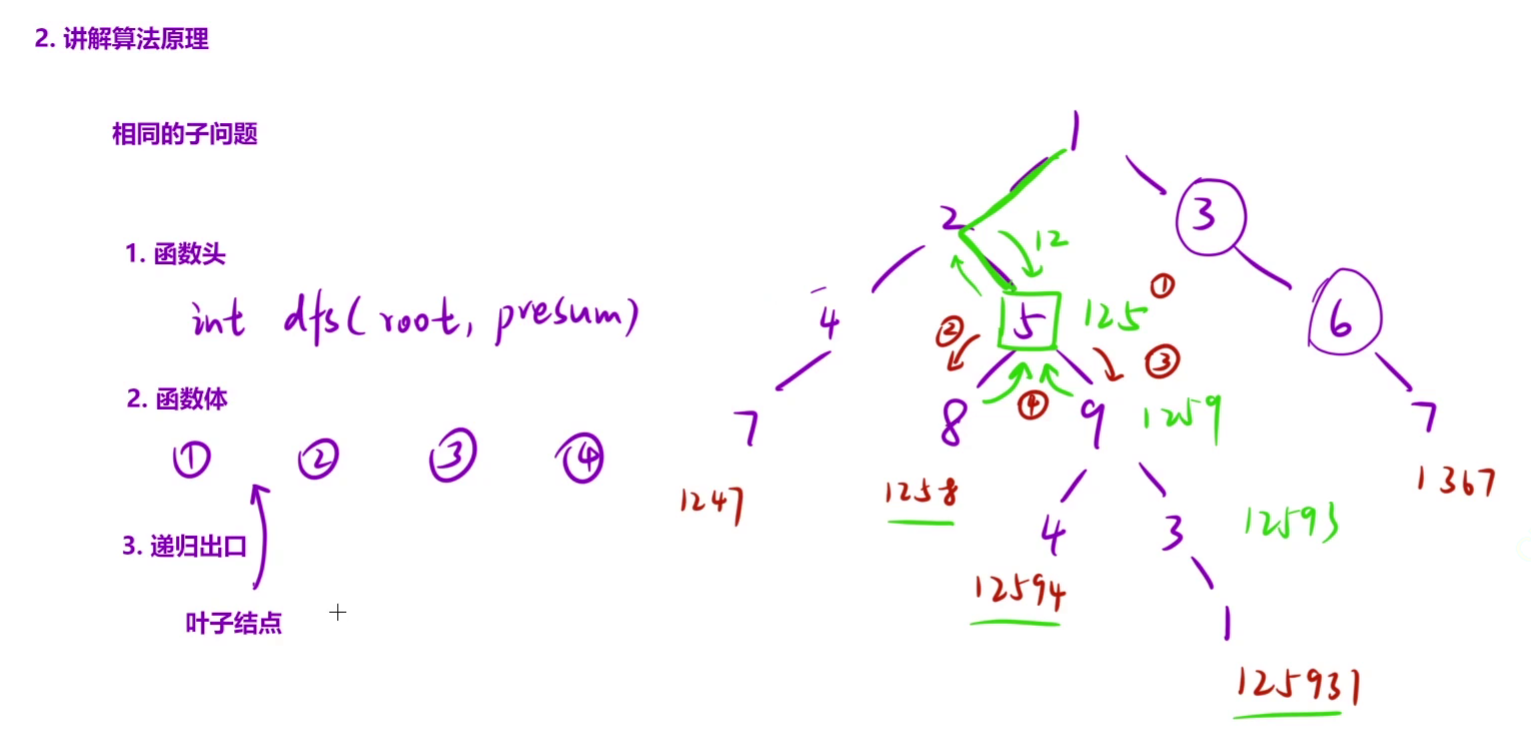 2. 讲解算法原理
相同的子问题
1. 函数头
int dfs(root, presum)
2. 函数体
① ② ③ ④
3. 递归出口
叶子结点
1
2 3
12
4 5 125 ① 6
② ③
7 8 ④ 9 1259 7
1247 1258 1367
4 3 12593
12594
1
125931